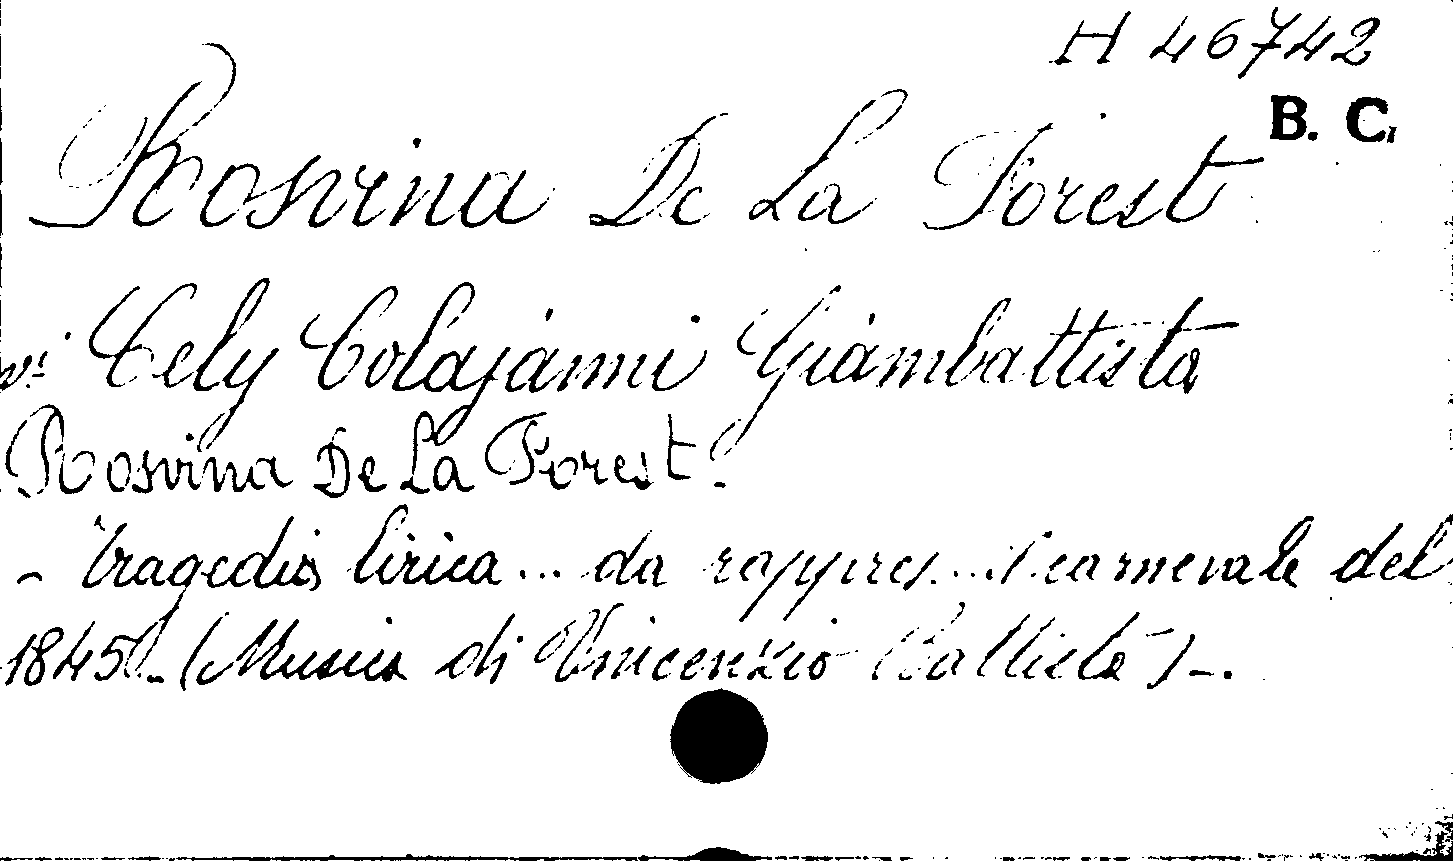 H 46742
B. C.
Rosvina De La Forest
vi Cely Colajanni Giambattista
Rosvina De La Forest.
- Tragedia lirica... da rappres... il carnevale del
1845. - (Musica di Vincenzio Battista) -.